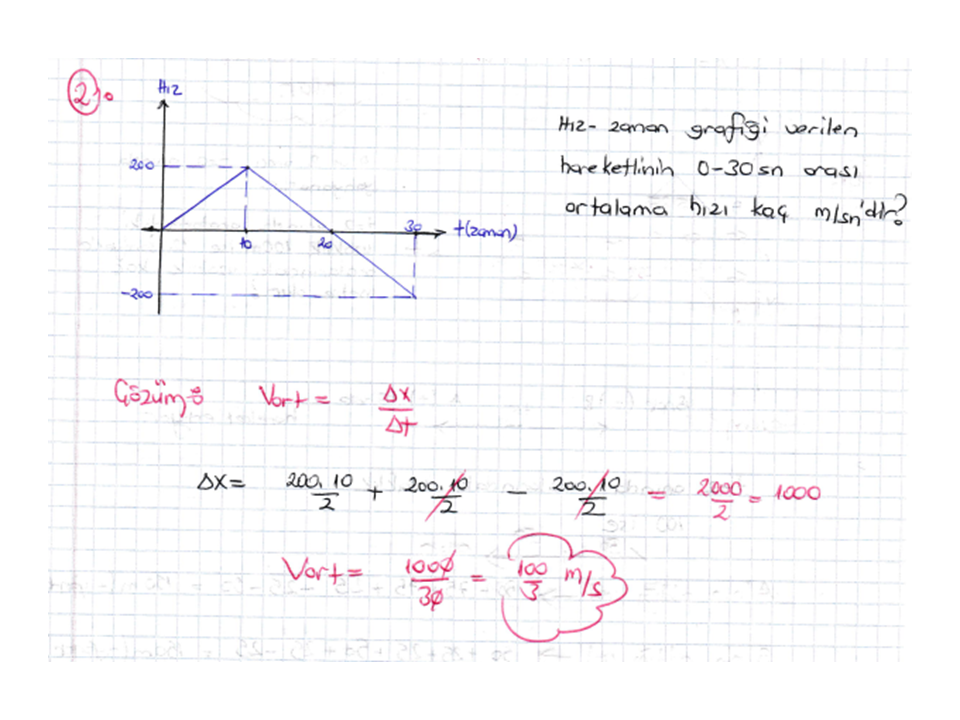 2).
Hız
200
10
20
30
t(zaman)
-200
Hız-zaman grafiği verilen
hareketlinin 0-30 sn arası
ortalama hızı kaç m/sn'dir?
Çözüm: Vort = Δx/Δt
Δx = 200.10/2 + 200.10/2 - 200.10/2 = 2000/2 = 1000
Vort = 1000/30 = 100/3 m/s